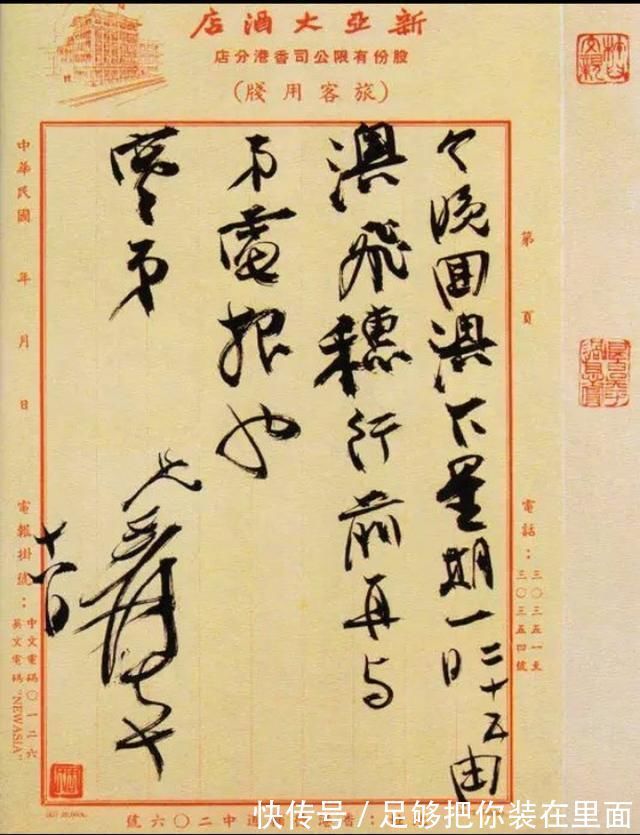 新亞大酒店
股份有限公司香港分店
(旅客用牋)
第 頁
電話：三〇三五一至
三〇三五四號
今晚囬澳下星期一二十五日由
澳飛穗行前再与
弟電報也
弟
兄爰
中華民國 年 月 日
電報掛號：中文電碼〇一三六
英文電碼"NEWASIA"
道中二〇六號
快传号 / 足够把你装在里面